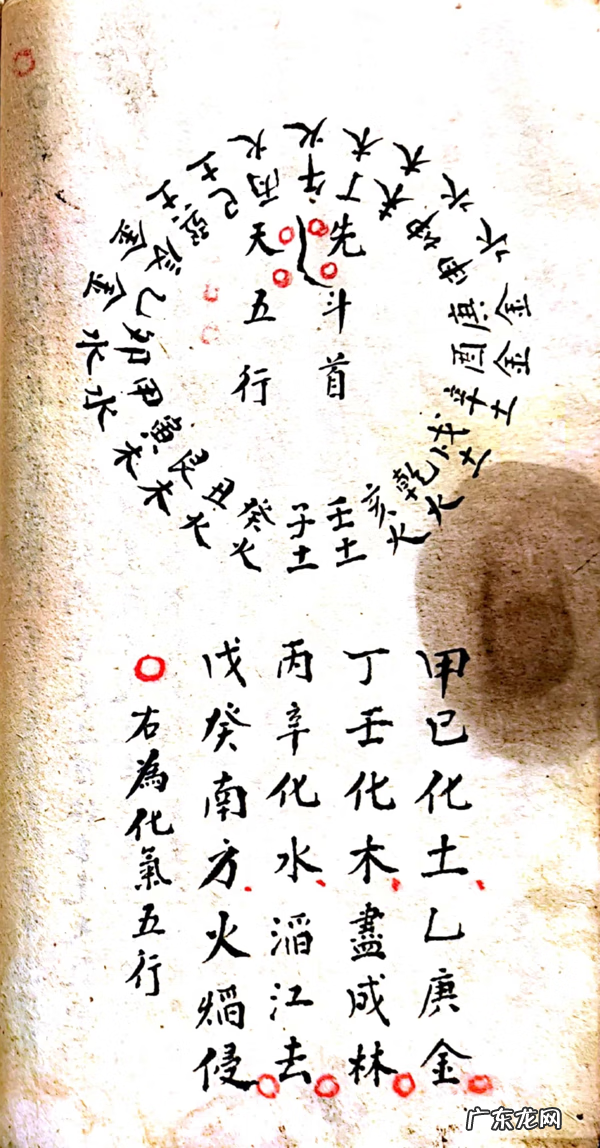 先斗首
天五行
壬土
子土
癸火
丑火
艮木
寅木
甲水
卯水
乙金
辰金
巽土
巳土
丙火
午火
丁木
未木
坤水
申水
庚金
酉金
辛土
戌土
乾火
亥火
甲己化土乙庚金
丁壬化木盡成林
丙辛化水滔江去
戊癸南方火焰侵
右為化氣五行
广东龙网